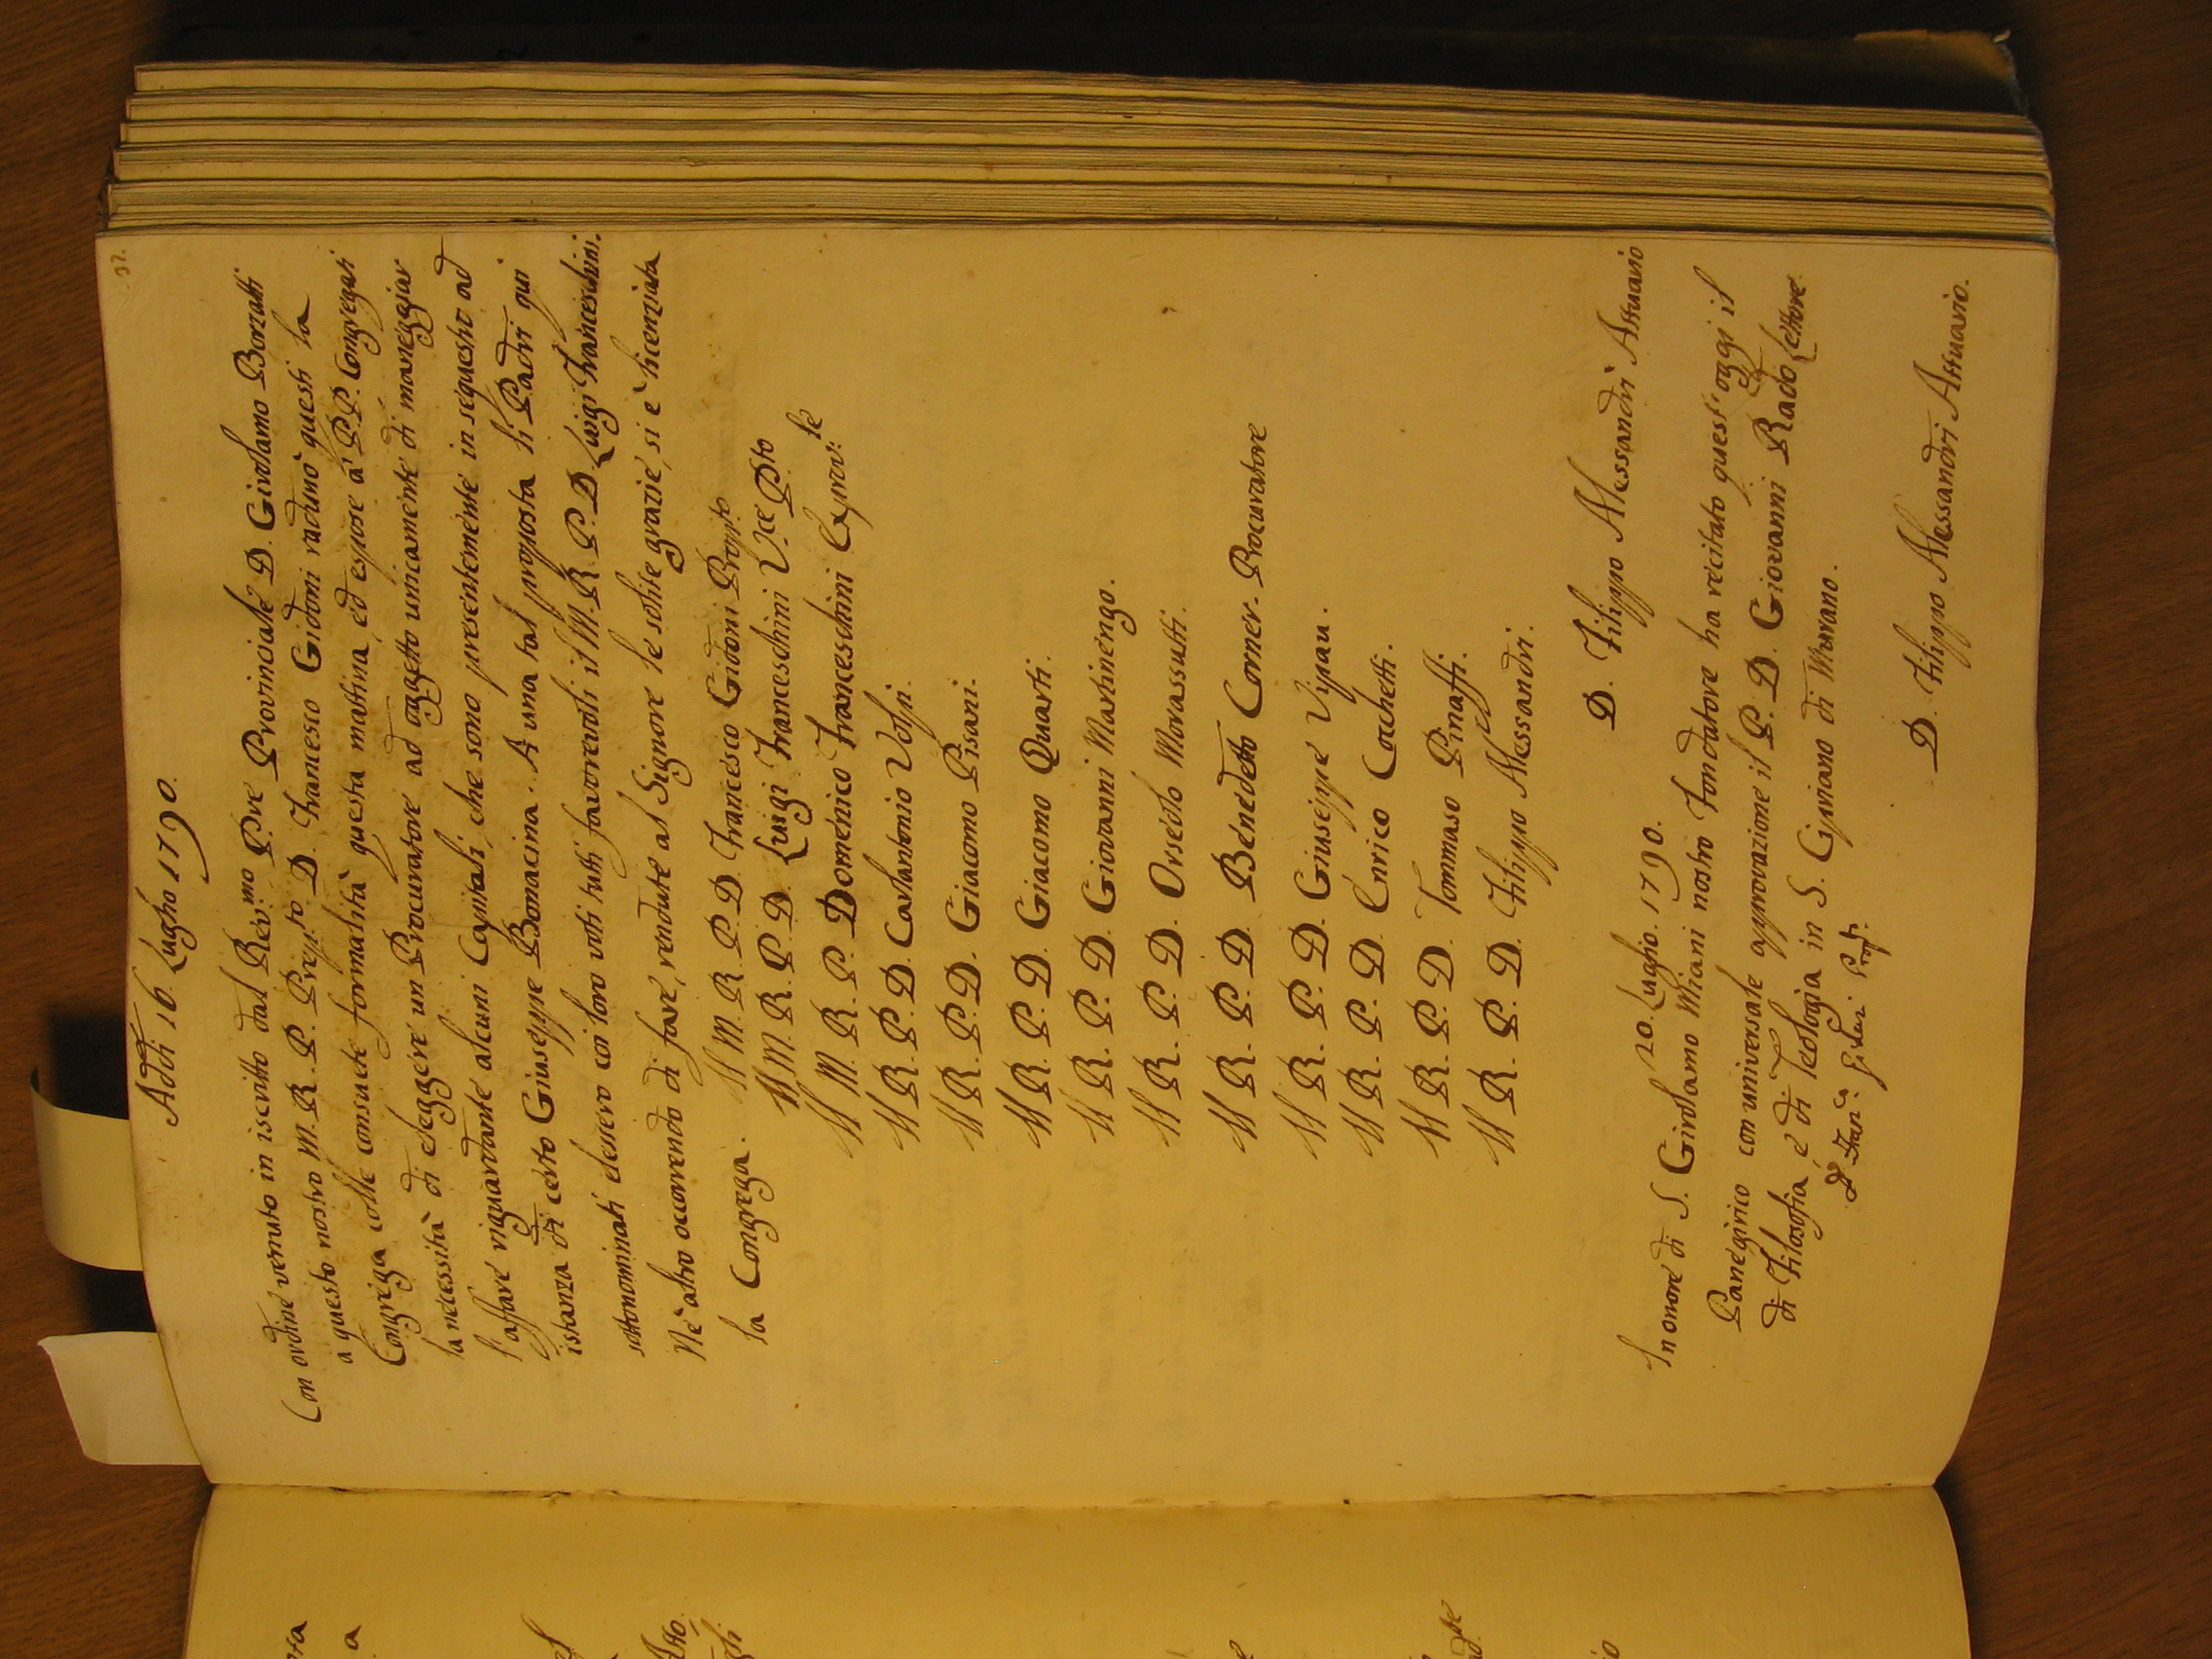 37.
Addì 16. Luglio 1790.
Con ordine venuto in iscritto dal Rev:mo P.re Provinciale D. Girolamo Bonzatti
a questo nostro M. R. P. Prep.to D. Francesco Gidoni radunò questi la
Congrega colle consuete formalità questa mattina, ed espose a' PP. Congregati
la necessità di eleggere un Procuratore ad oggetto unicamente di maneggiar
l'affare riguardante alcuni Capitali, che sono presentemente in sequestro ad
istanza di certo Giuseppe Bonacina. A una tal proposta li Padri qui
sottonominati elessero coi loro voti tutti favorevoli il M. R. P. D. Luigi Franceschini.
Nè altro occorrendo di fare, rendute al Signore le solite grazie, si è licenziata
la Congrega.
Il M. R. P. D. Francesco Gidoni Prep.to
Il M. R. P. D. Luigi Franceschini V.ce P.to
Il M. R. P. Domenico Franceschini Exprov:le
Il R. P. D. Carlantonio Volpi.
Il R. P. D. Giacomo Pisani.
Il R. P. D. Giacomo Quarti.
Il R. P. D. Giovanni Martinengo.
Il R. P. D. Orseolo Morassutti.
Il R. P. D. Benedetto Corner. Procuratore
Il R. P. D. Giuseppe Vipau.
Il R. P. D. Enrico Cocchetti.
Il R. P. D. Tommaso Pinaffi.
Il R. P. D. Filippo Alessandri.
D. Filippo Alessandri Attuario
20. Luglio. 1790.
In onore di S. Girolamo Miani nostro Fondatore ha recitato quest'oggi il
Panegirico con universale approvazione il P. D. Giovanni Rado Lettore
di Filosofia, e di Teologia in S. Cipriano di Murano.
D. Fran:co Gidoni Prep.
D. Filippo Alessandri Attuario.